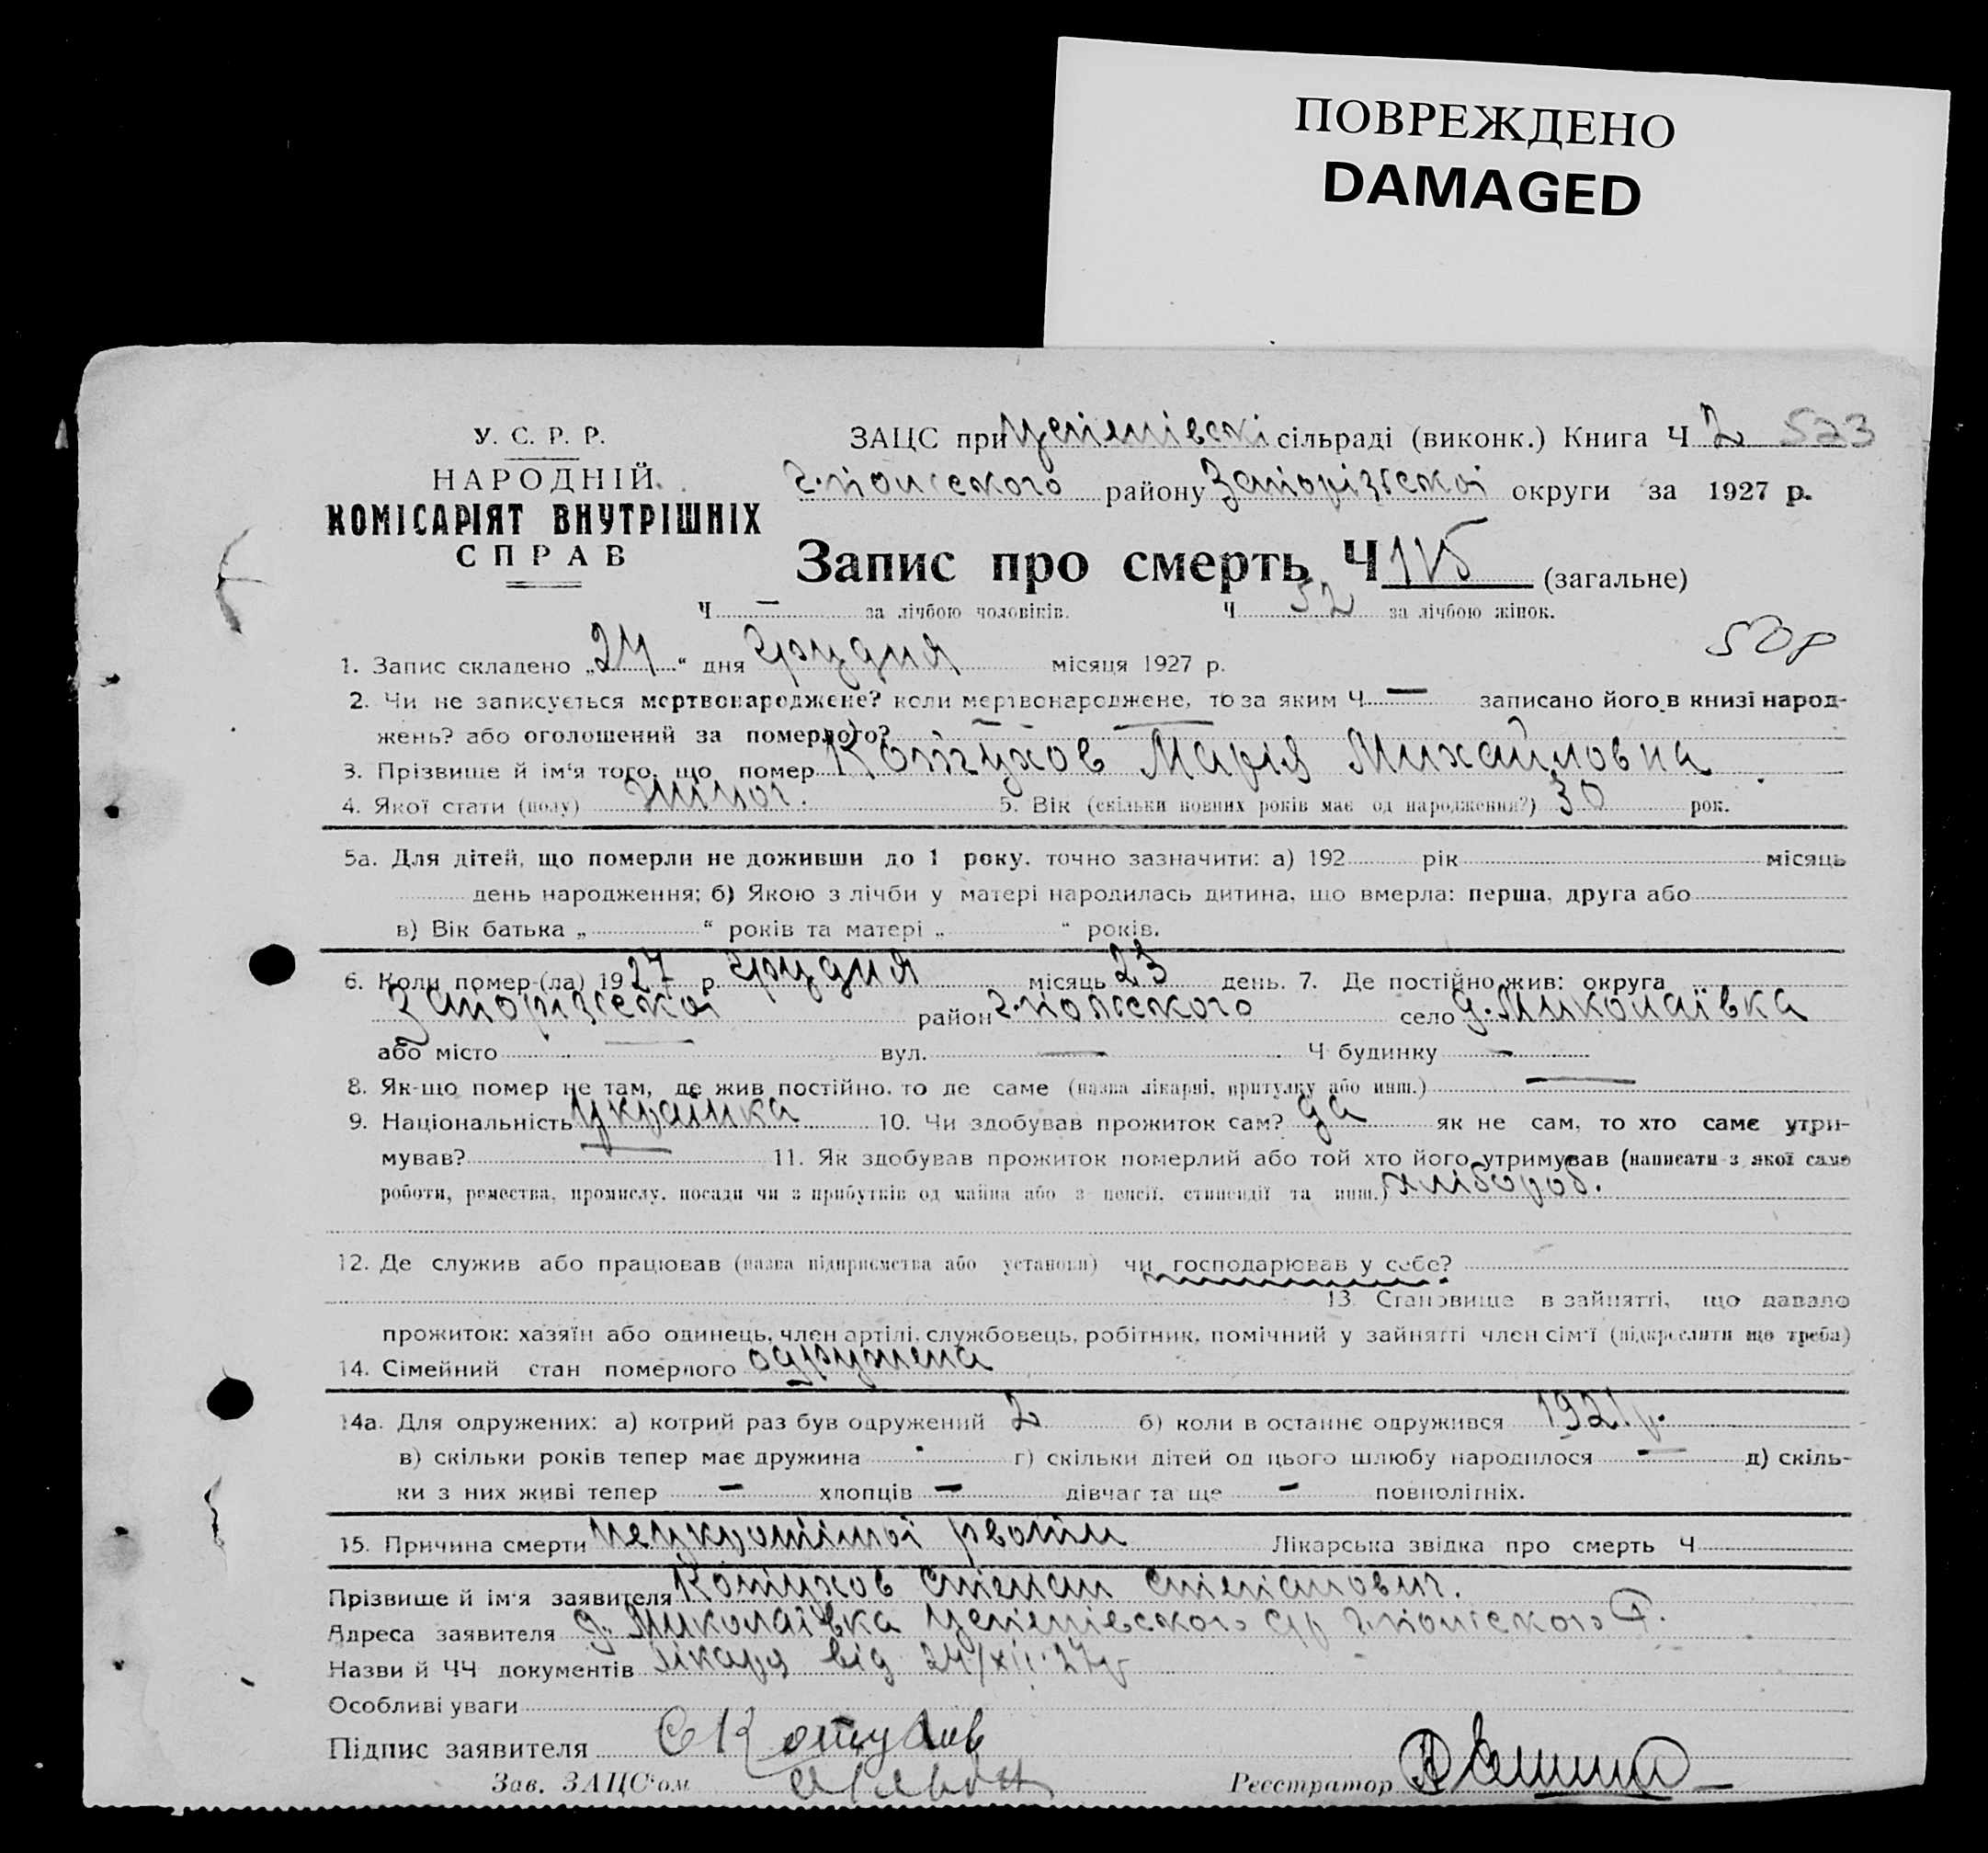 ПОВРЕЖДЕНО
DAMAGED
У. С. Р. Р.
НАРОДНІЙ
КОМІСАРІЯТ ВНУТРІШНІХ
СПРАВ
ЗАЦС при Успенівскі сільраді (виконк.) Книга Ч 2 523
г.польского району Запорізской округи за 1927 р.
Запис про смерть Ч 115 (загальне)
Ч — за лічбою чоловіків. Ч 52 за лічбою жінок.
50р
1. Запис складено „24“ дня грудня місяця 1927 р.
2. Чи не записується мертвонароджене? коли мертвонароджене, то за яким Ч — записано його в книзі народ-
жень? або оголошений за померлого? — —
3. Прізвище й ім'я того, що помер Котухов Марія Михайловна
4. Якої стати (полу) жіноч. 5. Вік (скільки повних років має од народження?) 30 рок.
5а. Для дітей, що померли не доживши до 1 року, точно зазначити: а) 192 рік місяць
день народження; б) Якою з лічби у матері народилась дитина, що вмерла: перша, друга або
в) Вік батька „ “ років та матері „ “ років.
6. Коли помер-(ла) 1927 р. грудня місяць 23 день. 7. Де постійно жив: округа
Запорізской район г.польского село д.Миколаївка
або місто — вул. — Ч будинку —
8. Як-що помер не там, де жив постійно, то де саме (назва лікарні, притулку або инш.) —
9. Національність українка 10. Чи здобував прожиток сам? да як не сам, то хто саме утри-
мував? 11. Як здобував прожиток померлий або той хто його утримував (написати з якої само
роботи, ремества, промислу, посади чи з прибутків од майна або з пенсії, стипендії та инш.) хлібороб.
12. Де служив або працював (назва підприємства або установи) чи господарював у себе?
13. Становище в зайнятті, що давало
прожиток: хазяїн або одинець, член артілі, службовець, робітник, помічний у зайнятті член сім'ї (підкреслити що треба)
14. Сімейний стан померлого одружена
14а. Для одружених: а) котрий раз був одружений 2 б) коли в останнє одружився 1921 р.
в) скільки років тепер має дружина - г) скільки дітей од цього шлюбу народилося — д) скіль-
ки з них живі тепер — хлопців — дівчат та ще — повнолітніх.
15. Причина смерти неукротімої рвоти Лікарська звідка про смерть Ч
Прізвище й ім'я заявителя Котухов Степан Степанович.
Адреса заявителя д. Миколаївка Успенівского с/р г.польского Р.
Назви й ЧЧ документів лікаря від 24/XII.27р
Особливі уваги
Підпис заявителя С Котухов
Зав. ЗАЦС'ом
Реєстратор